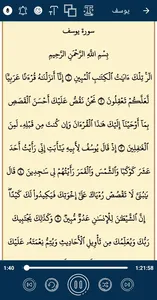 يوسف
سورة يوسف
بِسْمِ اللَّهِ الرَّحْمَٰنِ الرَّحِيمِ
الٓر تِلْكَ ءَايَٰتُ الْكِتَٰبِ الْمُبِينِ ١ إِنَّآ أَنزَلْنَٰهُ قُرْءَٰنًا عَرَبِيًّا
لَّعَلَّكُمْ تَعْقِلُونَ ٢ نَحْنُ نَقُصُّ عَلَيْكَ أَحْسَنَ الْقَصَصِ
بِمَآ أَوْحَيْنَآ إِلَيْكَ هَٰذَا الْقُرْءَانَ وَإِن كُنتَ مِن قَبْلِهِۦ لَمِنَ
الْغَٰفِلِينَ ٣ إِذْ قَالَ يُوسُفُ لِأَبِيهِ يَٰٓأَبَتِ إِنِّي رَأَيْتُ أَحَدَ
عَشَرَ كَوْكَبًا وَالشَّمْسَ وَالْقَمَرَ رَأَيْتُهُمْ لِي سَٰجِدِينَ ٤ قَالَ
يَٰبُنَيَّ لَا تَقْصُصْ رُءْيَاكَ عَلَىٰٓ إِخْوَتِكَ فَيَكِيدُوا لَكَ كَيْدًا
إِنَّ الشَّيْطَٰنَ لِلْإِنسَٰنِ عَدُوٌّ مُّبِينٌ ٥ وَكَذَٰلِكَ يَجْتَبِيكَ
رَبُّكَ وَيُعَلِّمُكَ مِن تَأْوِيلِ الْأَحَادِيثِ وَيُتِمُّ نِعْمَتَهُۥ عَلَيْكَ
1:40 1:21:58